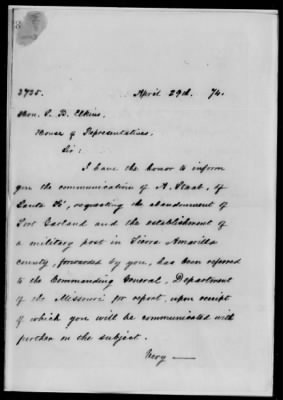 2735. April 29th, 74.
Hon. S. B. Elkins,
House of Representatives,
Sir:
I have the honor to inform
you the communication of A. Staab, of
Santa Fé, requesting the abandonment of
Fort Garland and the establishment of
a military post in Tierra Amarilla
county, forwarded by you, has been referred
to the Commanding General, Department
of the Missouri for report, upon receipt
of which you will be communicated with
further on the subject.
Very